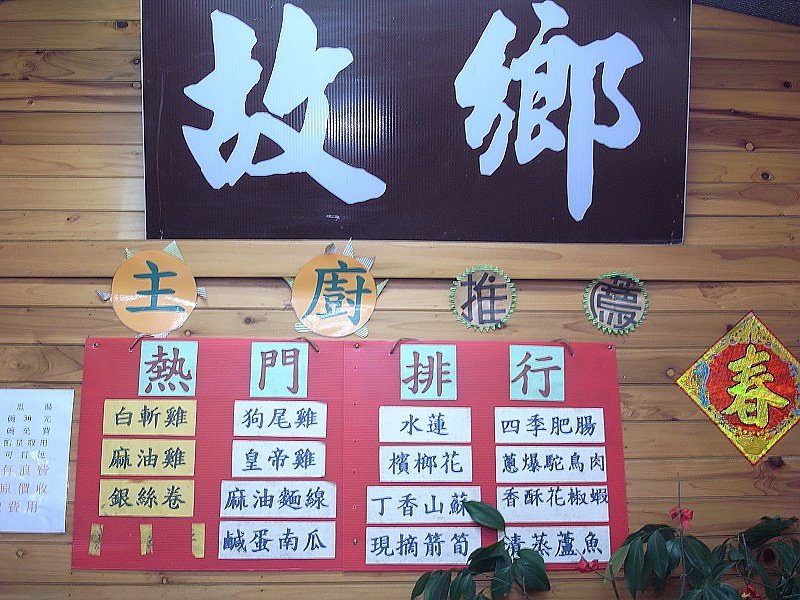 故鄉
主廚推薦
熱門排行
春
白斬雞
麻油雞
銀絲卷
狗尾雞
皇帝雞
麻油麵線
鹹蛋南瓜
水蓮
檳榔花
丁香山蘇
現摘箭筍
四季肥腸
蔥爆駝鳥肉
香酥花椒蝦
清蒸鱸魚
可打包
有浪費
原價收
費用